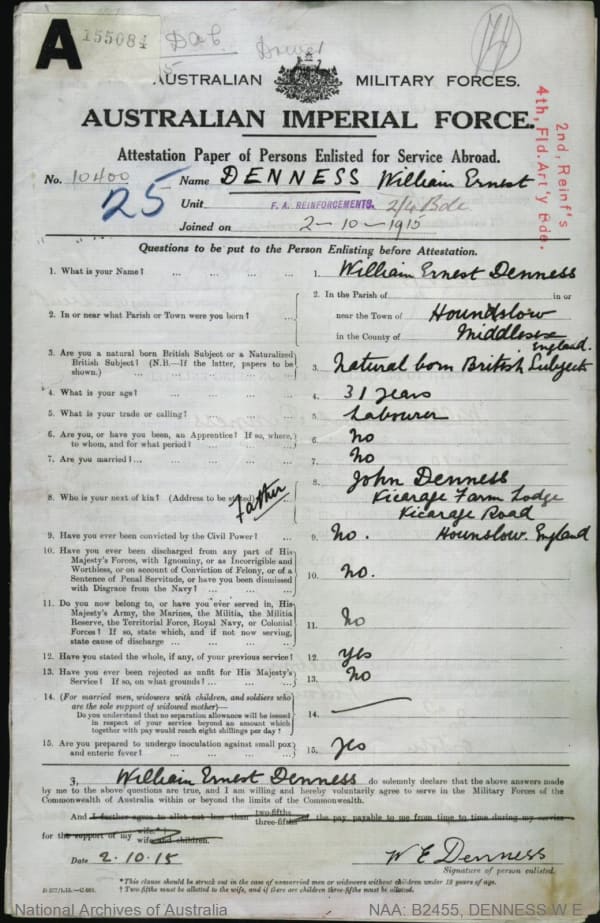 A
155084
DAC
Driver
AUSTRALIAN MILITARY FORCES.
AUSTRALIAN IMPERIAL FORCE.
2nd, Reinf's
4th, Fld. Art'y Bde.
Attestation Paper of Persons Enlisted for Service Abroad.
No. 10400 Name DENNESS William Ernest
25
Unit F. A. REINFORCEMENTS. 2/4 Bde
Joined on 2-10-1915
Questions to be put to the Person Enlisting before Attestation.
1. What is your Name? ... ... ... ... 1. William Ernest Denness
2. In or near what Parish or Town were you born? ... 2. In the Parish of in or
near the Town of Hounslow
in the County of Middlesex
England.
3. Are you a natural born British Subject or a Naturalized
British Subject? (N.B.—If the latter, papers to be
shown.) ... ... ... ... 3. Natural born British Subject
4. What is your age? ... ... ... ... 4. 31 years
5. What is your trade or calling? ... ... ... 5. Labourer
6. Are you, or have you been, an Apprentice? If so, where,
to whom, and for what period? ... ... ... 6. No
7. Are you married? ... ... ... ... 7. No
8. Who is your next of kin? (Address to be stated) Father 8. John Denness
Vicarage Farm Lodge
Vicarage Road
Hounslow. England
9. Have you ever been convicted by the Civil Power? ... 9. No.
10. Have you ever been discharged from any part of His
Majesty's Forces, with Ignominy, or as Incorrigible and
Worthless, or on account of Conviction of Felony, or of a
Sentence of Penal Servitude, or have you been dismissed
with Disgrace from the Navy? ... ... ... 10. No.
11. Do you now belong to, or have you ever served in, His
Majesty's Army, the Marines, the Militia, the Militia
Reserve, the Territorial Force, Royal Navy, or Colonial
Forces? If so, state which, and if not now serving,
state cause of discharge ... ... ... 11. No
12. Have you stated the whole, if any, of your previous service? 12. Yes
13. Have you ever been rejected as unfit for His Majesty's
Service? If so, on what grounds? ... ... ... 13. No
14. (For married men, widowers with children, and soldiers who
are the sole support of widowed mother)—
Do you understand that no separation allowance will be issued
in respect of your service beyond an amount which
together with pay would reach eight shillings per day? 14.
15. Are you prepared to undergo inoculation against small pox
and enteric fever? ... ... ... ... 15. Yes
3, William Ernest Denness do solemnly declare that the above answers made
by me to the above questions are true, and I am willing and hereby voluntarily agree to serve in the Military Forces of the
Commonwealth of Australia within or beyond the limits of the Commonwealth.
And I further agree to allot not less than two-fifths three-fifths of the pay payable to me from time to time during my service
for the support of my wife* wife and children.
Date 2.10.15 W E Denness
Signature of person enlisted.
*This clause should be struck out in the case of unmarried men or widowers without children under 18 years of age.
† Two-fifths must be allotted to the wife, and if there are children three-fifths must be allotted.
National Archives of Australia NAA: B2455, DENNESS W E